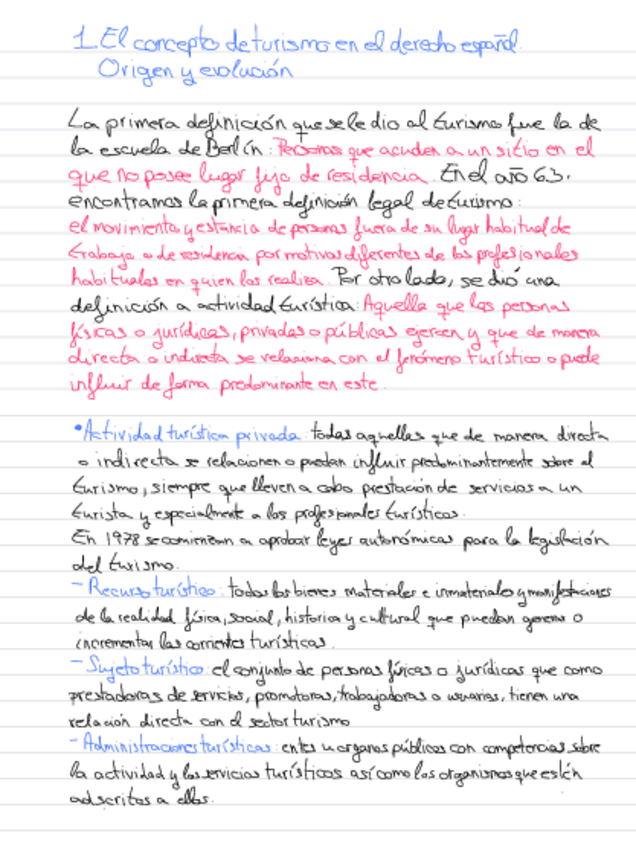 1. El concepto de turismo en el derecho español.
Origen y evolución
La primera definición que se le dio al turismo fue la de
la escuela de Berlín: Personas que acuden a un sitio en el
que no posee lugar fijo de residencia. En el año 63.
encontramos la primera definición legal de turismo:
el movimiento y estancia de personas fuera de su lugar habitual de
trabajo o de residencia por motivos diferentes de los profesionales
habituales en quien los realiza. Por otro lado, se dió una
definición a actividad turística: Aquella que las personas
físicas o jurídicas, privadas o públicas ejercen y que de manera
directa o indirecta se relaciona con el fenómeno turístico o puede
influir de forma predominante en este.
•Actividad turística privada: todas aquellas que de manera directa
o indirecta se relacionen o puedan influir predominantemente sobre el
turismo, siempre que lleven a cabo prestación de servicios a un
turista y especialmente a los profesionales turísticos.
En 1978 se comienzan a aprobar leyes autonómicas para la legislación
del turismo.
- Recurso turístico: todos los bienes materiales e inmateriales y manifestaciones
de la realidad física, social, historica y cultural que puedan generar o
incrementar las corrientes turísticas.
- Sujeto turístico: el conjunto de personas físicas o jurídicas que como
prestadoras de servicios, promotoras, trabajadoras o usuarias, tienen una
relación directa con el sector turismo
- Administraciones turísticas: entes u organos públicos con competencias sobre
la actividad y los servicios turísticos así como los organismos que estén
adscritos a ellos.